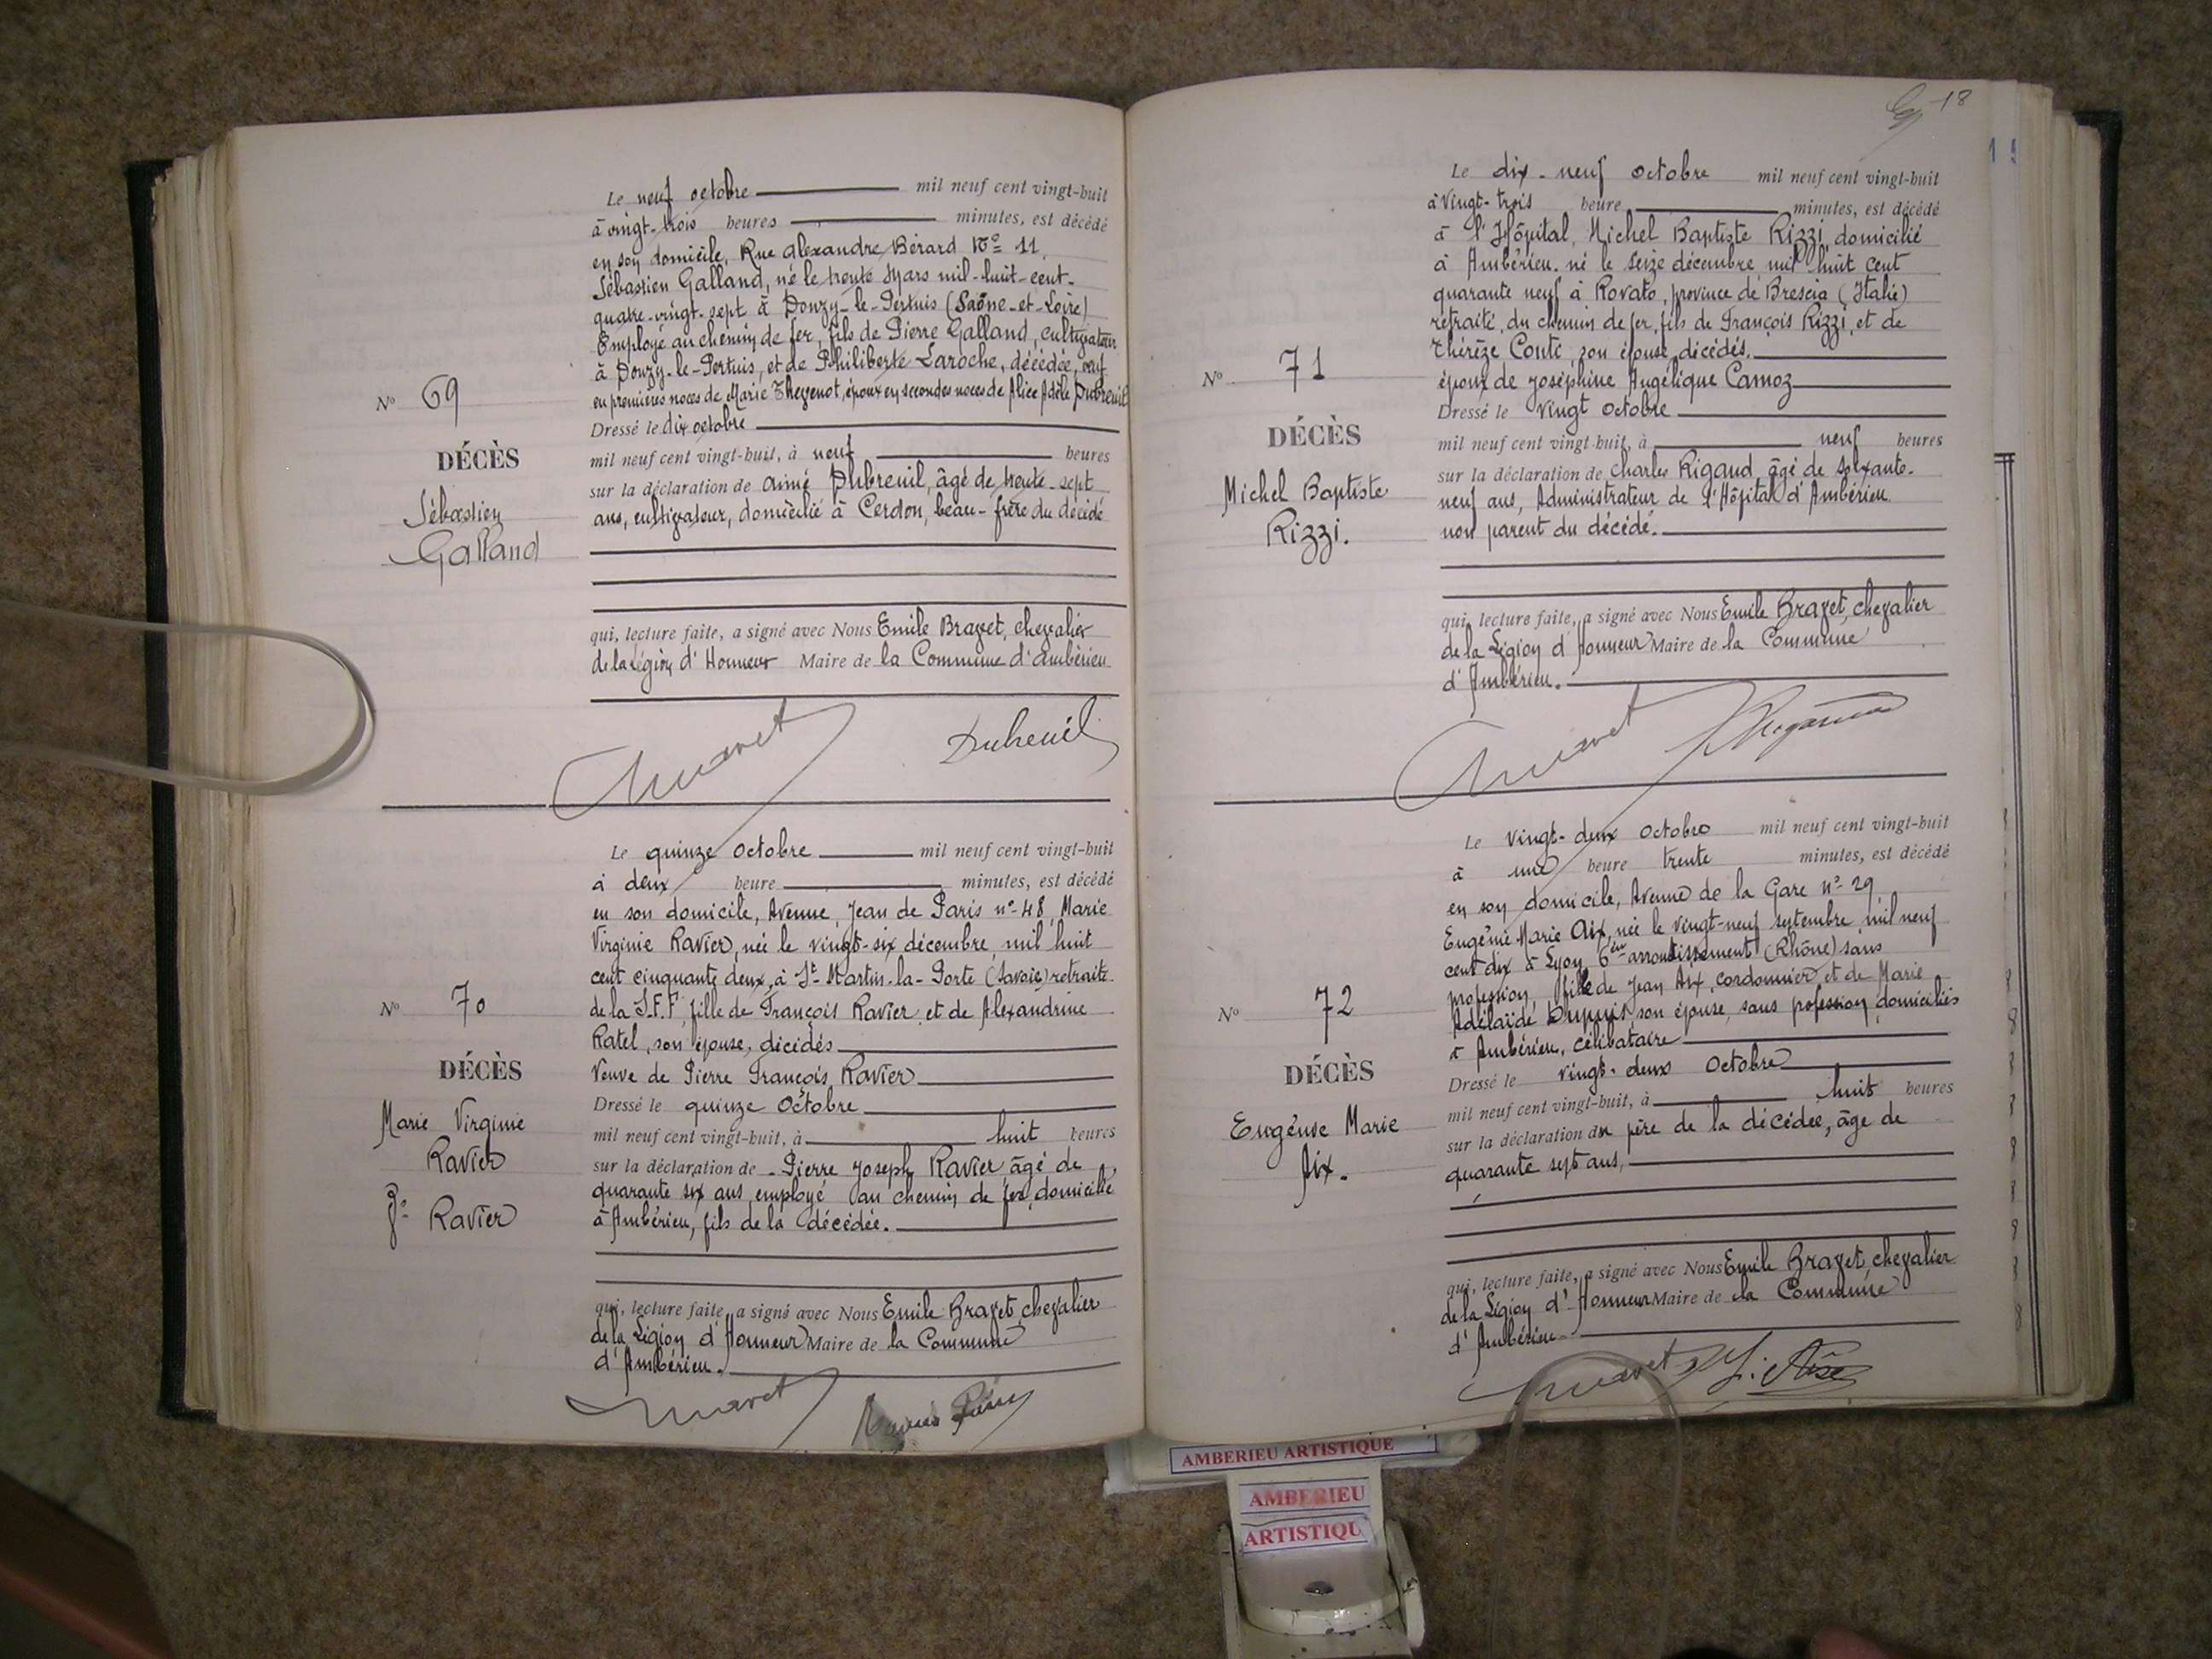 Le neuf octobre mil neuf cent vingt-huit
à vingt-trois heures minutes, est décédé
en son domicile, Rue Alexandre Bérard No 11,
Sébastien Galland, né le trente Mars mil-huit-cent-
quatre-vingt-sept à Donzy-le-Pertuis (Saône-et-Loire)
Employé au chemin de fer, fils de Pierre Galland, cultivateur
à Donzy-le-Pertuis, et de Philiberte Laroche, décédée, veuf
en premières noces de Marie Thevenot, époux en secondes noces de Alice Adèle Dubreuil
Dressé le dix octobre
mil neuf cent vingt-huit, à neuf heures
sur la déclaration de Aimé Dubreuil, âgé de trente-sept
ans, cultivateur, domicilié à Cerdon, beau-frère du décédé
qui, lecture faite, a signé avec Nous Emile Bravet, chevalier
de la Légion d'Honneur Maire de la Commune d'Ambérieu
Dubreuil
No 69
DÉCÈS
Sébastien
Galland
Le quinze octobre mil neuf cent vingt-huit
à deux heure minutes, est décédé
en son domicile, Avenue Jean de Paris no 48, Marie
Virginie Ravier, née le vingt-six décembre mil huit
cent cinquante deux, à St-Martin-la-Porte (Savoie) retraité
de la S.F.F, fille de François Ravier et de Alexandrine
Ratel, son épouse, décédés
Veuve de Pierre François Ravier
Dressé le quinze Octobre
mil neuf cent vingt-huit, à huit heures
sur la déclaration de Pierre Joseph Ravier âgé de
quarante six ans employé au chemin de fer, domicilié
à Ambérieu, fils de la décédée.
qui, lecture faite, a signé avec Nous Emile Bravet, chevalier
de la Légion d'Honneur Maire de la Commune
d'Ambérieu.
No 70
DÉCÈS
Marie Virginie
Ravier
Ve Ravier
18
Le dix-neuf octobre mil neuf cent vingt-huit
à Vingt-trois heure minutes, est décédé
à l'Hôpital, Michel Baptiste Rizzi domicilié
à Ambérieu. né le seize décembre mil huit cent
quarante neuf à Rovato, province de Brescia (Italie)
retraité du chemin de fer, fils de François Rizzi, et de
Thérèze Conti son épouse, décédés.
époux de Joséphine Angélique Camoz
Dressé le Vingt Octobre
mil neuf cent vingt-huit, à neuf heures
sur la déclaration de Charles Rigaud, âgé de soixante-
neuf ans, Administrateur de l'Hôpital d'Ambérieu
non parent du décédé.
qui, lecture faite, a signé avec Nous Emile Bravet, chevalier
de la Légion d'Honneur Maire de la Commune
d'Ambérieu.
No 71
DÉCÈS
Michel Baptiste
Rizzi.
Le Vingt-deux Octobre mil neuf cent vingt-huit
à une heure trente minutes, est décédé
en son domicile, Avenue de la Gare no 29
Eugénie Marie Aix, née le vingt-neuf septembre mil neuf
cent dix à Lyon 6ème arrondissement (Rhône) sans
profession, fille de Jean Aix, cordonnier et de Marie
Adélaïde Dupuis, son épouse, sans profession, domiciliés
à Ambérieu, célibataire
Dressé le vingt-deux Octobre
mil neuf cent vingt-huit, à huit heures
sur la déclaration du père de la décédée, âgé de
quarante sept ans,
qui, lecture faite, a signé avec Nous Emile Bravet, chevalier
de la Légion d'Honneur Maire de la Commune
d'Ambérieu
No 72
DÉCÈS
Eugénie Marie
Aix.
AMBERIEU ARTISTIQUE
AMBERIEU
ARTISTIQU